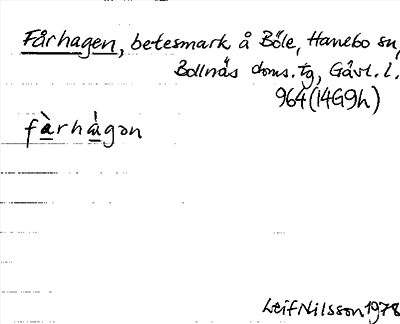 Fårhagen, betesmark å Böle, Hanebo sn,
Bollnäs doms. tg, Gävl. l.
964 (14G9h)
fàrhàgon
Leif Nilsson 1978